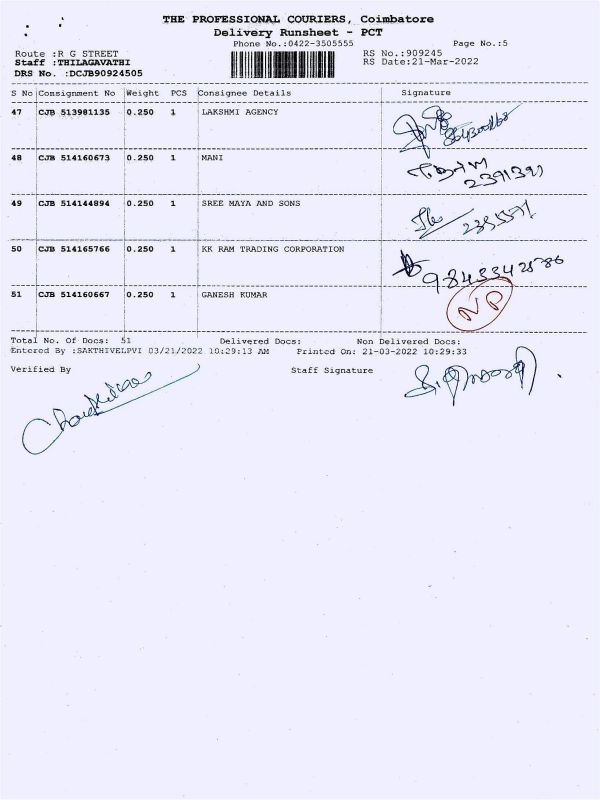 THE PROFESSIONAL COURIERS, Coimbatore
Delivery Runsheet - PCT
Phone No.:0422-3505555 Page No.:5
Route :R G STREET RS No.:909245
Staff :THILAGAVATHI RS Date:21-Mar-2022
DRS No. :DCJB90924505
S No Consignment No Weight PCS Consignee Details Signature
47 CJB 513981135 0.250 1 LAKSHMI AGENCY
48 CJB 514160673 0.250 1 MANI
2391391
49 CJB 514144894 0.250 1 SREE MAYA AND SONS
2355571
50 CJB 514165766 0.250 1 KK RAM TRADING CORPORATION
51 CJB 514160667 0.250 1 GANESH KUMAR NP
Total No. Of Docs: 51 Delivered Docs: Non Delivered Docs:
Entered By :SAKTHIVELPVI 03/21/2022 10:29:13 AM Printed On: 21-03-2022 10:29:33
Verified By Staff Signature